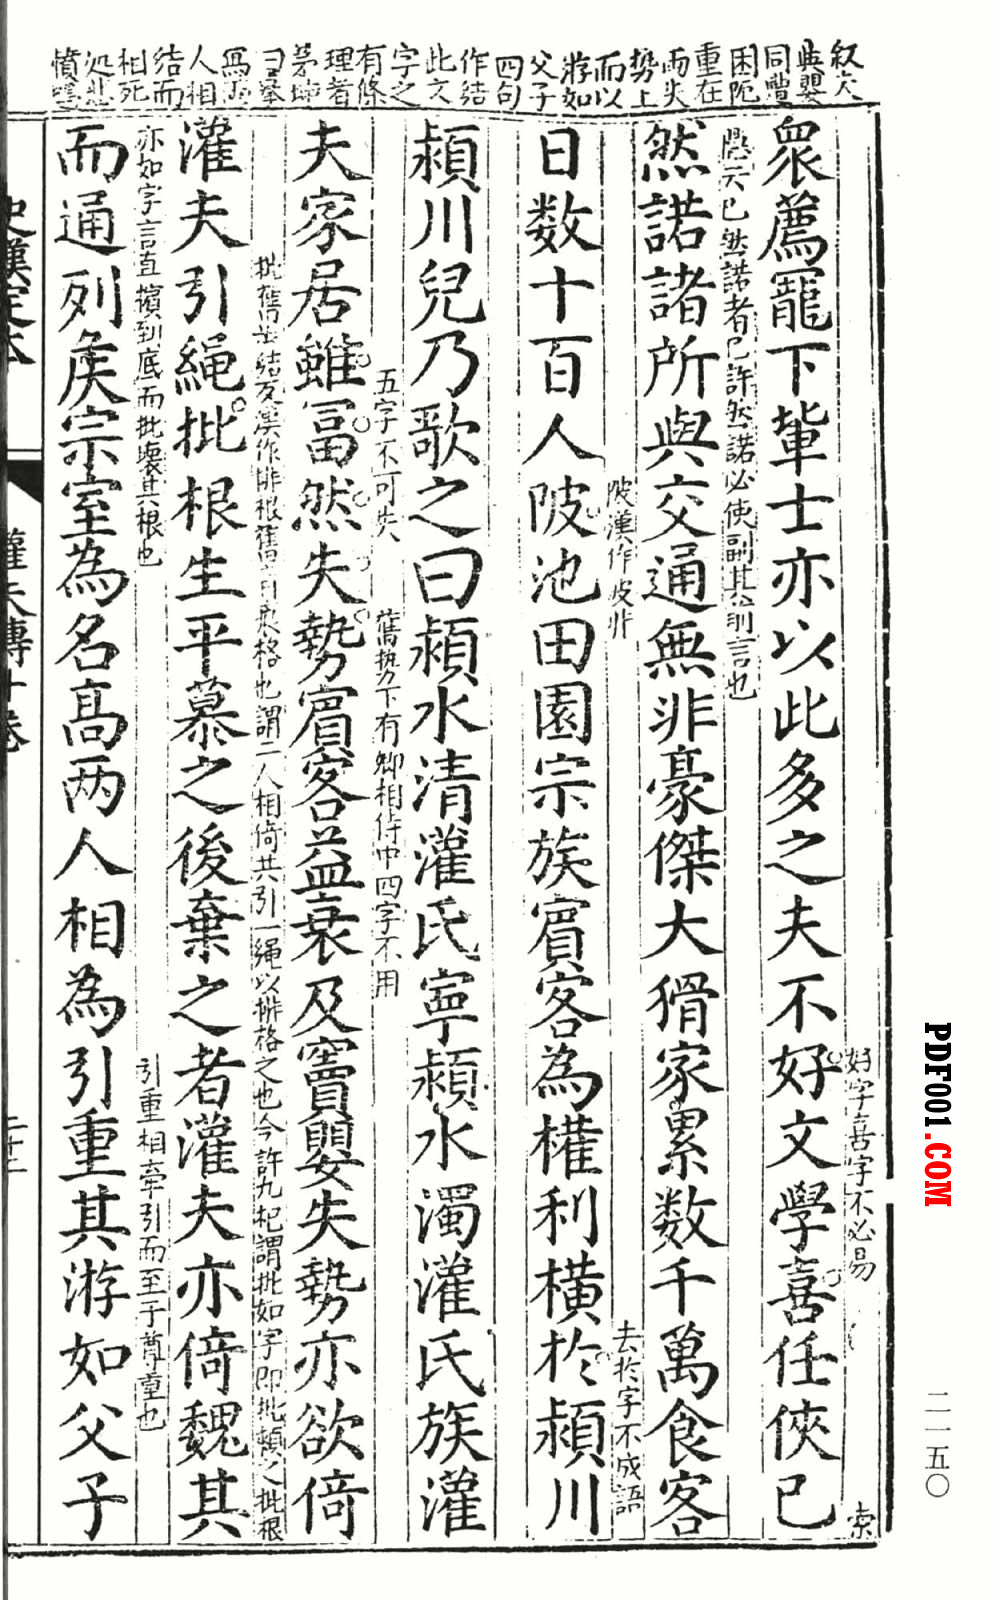 叙夫
與嬰
同豐
困阨
重在
而失
勢上
而以
游如
父子
四句
作結
此文
字之
有條
理者
茅坤
曰摹
寫兩
人相
結而
相死
処悲
憤
好字喜字不必易
索
衆薦寵下輩士亦以此多之夫不好文學喜任俠已
應云已然諾者已許然諾必使副其前言也
然諾諸所與交通無非豪傑大猾家累数千萬食客
陂漢作波非
去於字不成語
日数十百人陂池田園宗族賓客為權利横於潁川
潁川兒乃歌之曰潁水清灌氏寧潁水濁灌氏族灌
五字不可失
舊勢下有卿相侍中四字不用
夫家居雖冨然失勢賓客益衰及竇嬰失勢亦欲倚
批舊音結友漢作排根舊音痕格也謂二人相倚共引一繩以排格之也今許九杞謂批如字即批頼之批根
灌夫引繩批根生平慕之後棄之者灌夫亦倚魏其
亦如字言直擯到底而批壞其根也
引重相牽引而至于尊重也
而通列矦宗室為名高两人相為引重其游如父子
史漢定本
灌夫傳十卷
二十二
PDF001.COM
二一五〇